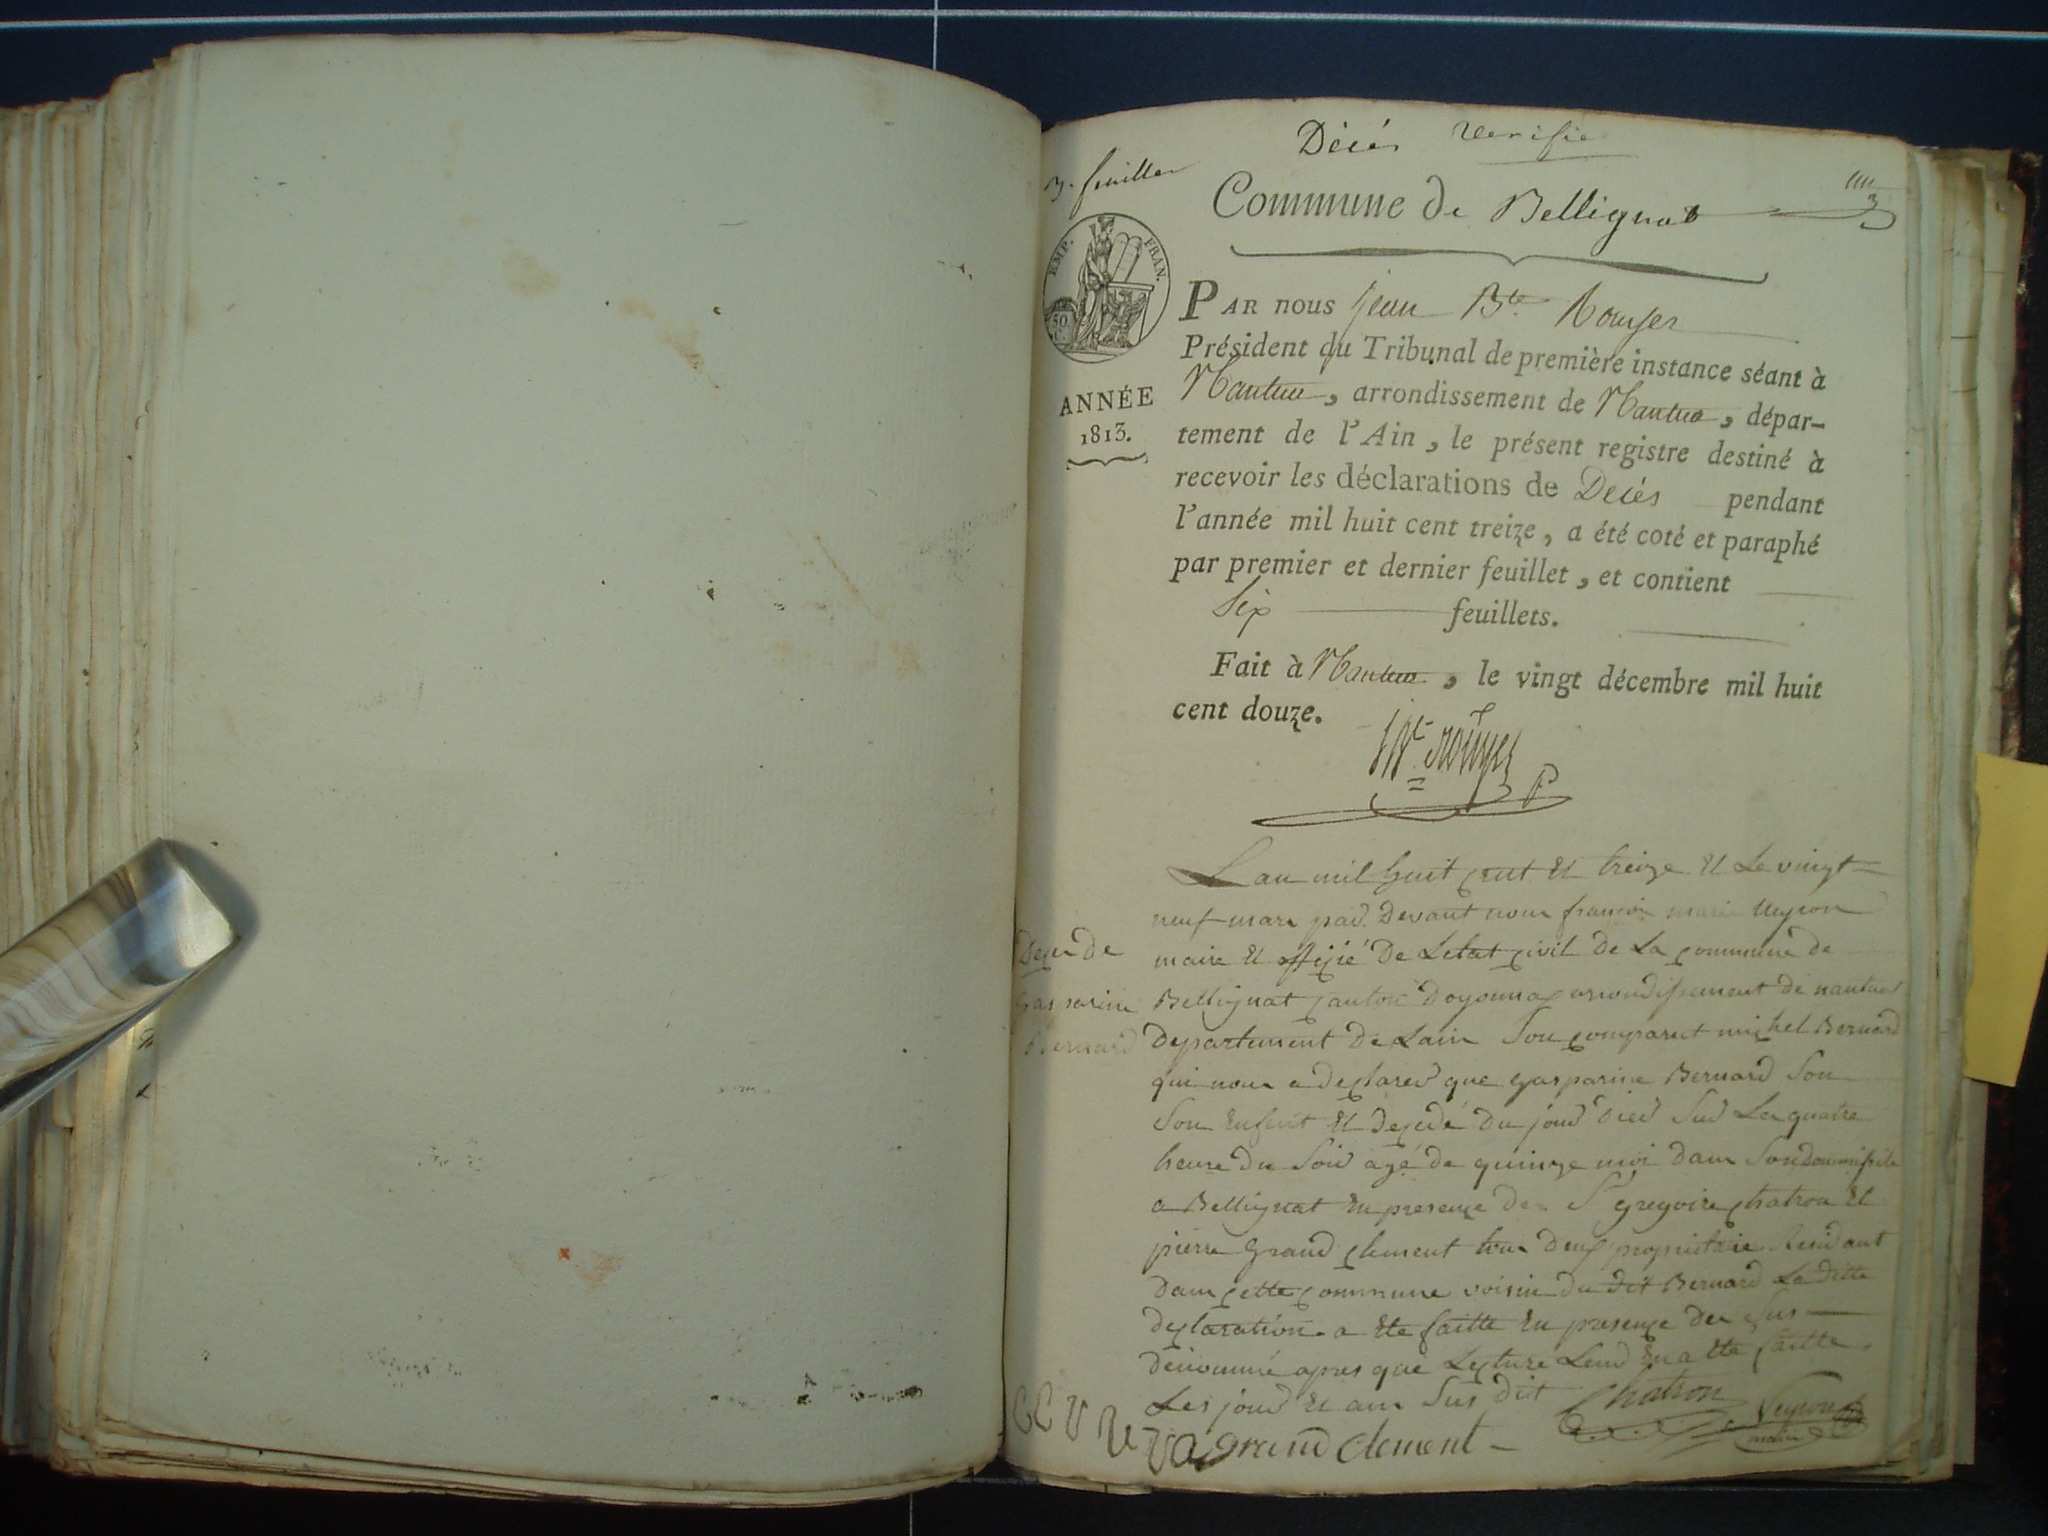 Décés verifié
3. feuillet
Commune de Bellignat
EMP. FRAN.
50
ANNÉE
1813.
PAR nous Jean Bte Rouyer
Président du Tribunal de première instance séant à
Nantua, arrondissement de Nantua, dépar-
tement de l'Ain, le présent registre destiné à
recevoir les déclarations de Décés pendant
l'année mil huit cent treize, a été coté et paraphé
par premier et dernier feuillet, et contient
Six feuillets.
Fait à Nantua, le vingt décembre mil huit
cent douze.
Rouyer P
Deces de
Gasparine
Bernard
L an mil huit cent et treize et le vingt
neuf mars par devant nous francois marie Veyron
maire et officié de Letat civil de La commune de
Bellignat canton doyonnax arrondissement de nantua
département de Lain Son comparut michel Bernard
qui nous a declared que gasparine Bernard Son
Son enfent et decedé du jour dier Sur Les quatre
heure du Soir agé de quinze moi dans Son domicile
a Bellignat en presence de S gregoire chatron et
pierre grand clement tous deux propriétaire Residant
dans cette commune voisin du dit Bernard La ditte
declaration a ete faitte en presence des sus
denommé apres que Lecture Leur en a ete faitte
Les jour et an Sus dit Chatron Veyron
maire
grand clement